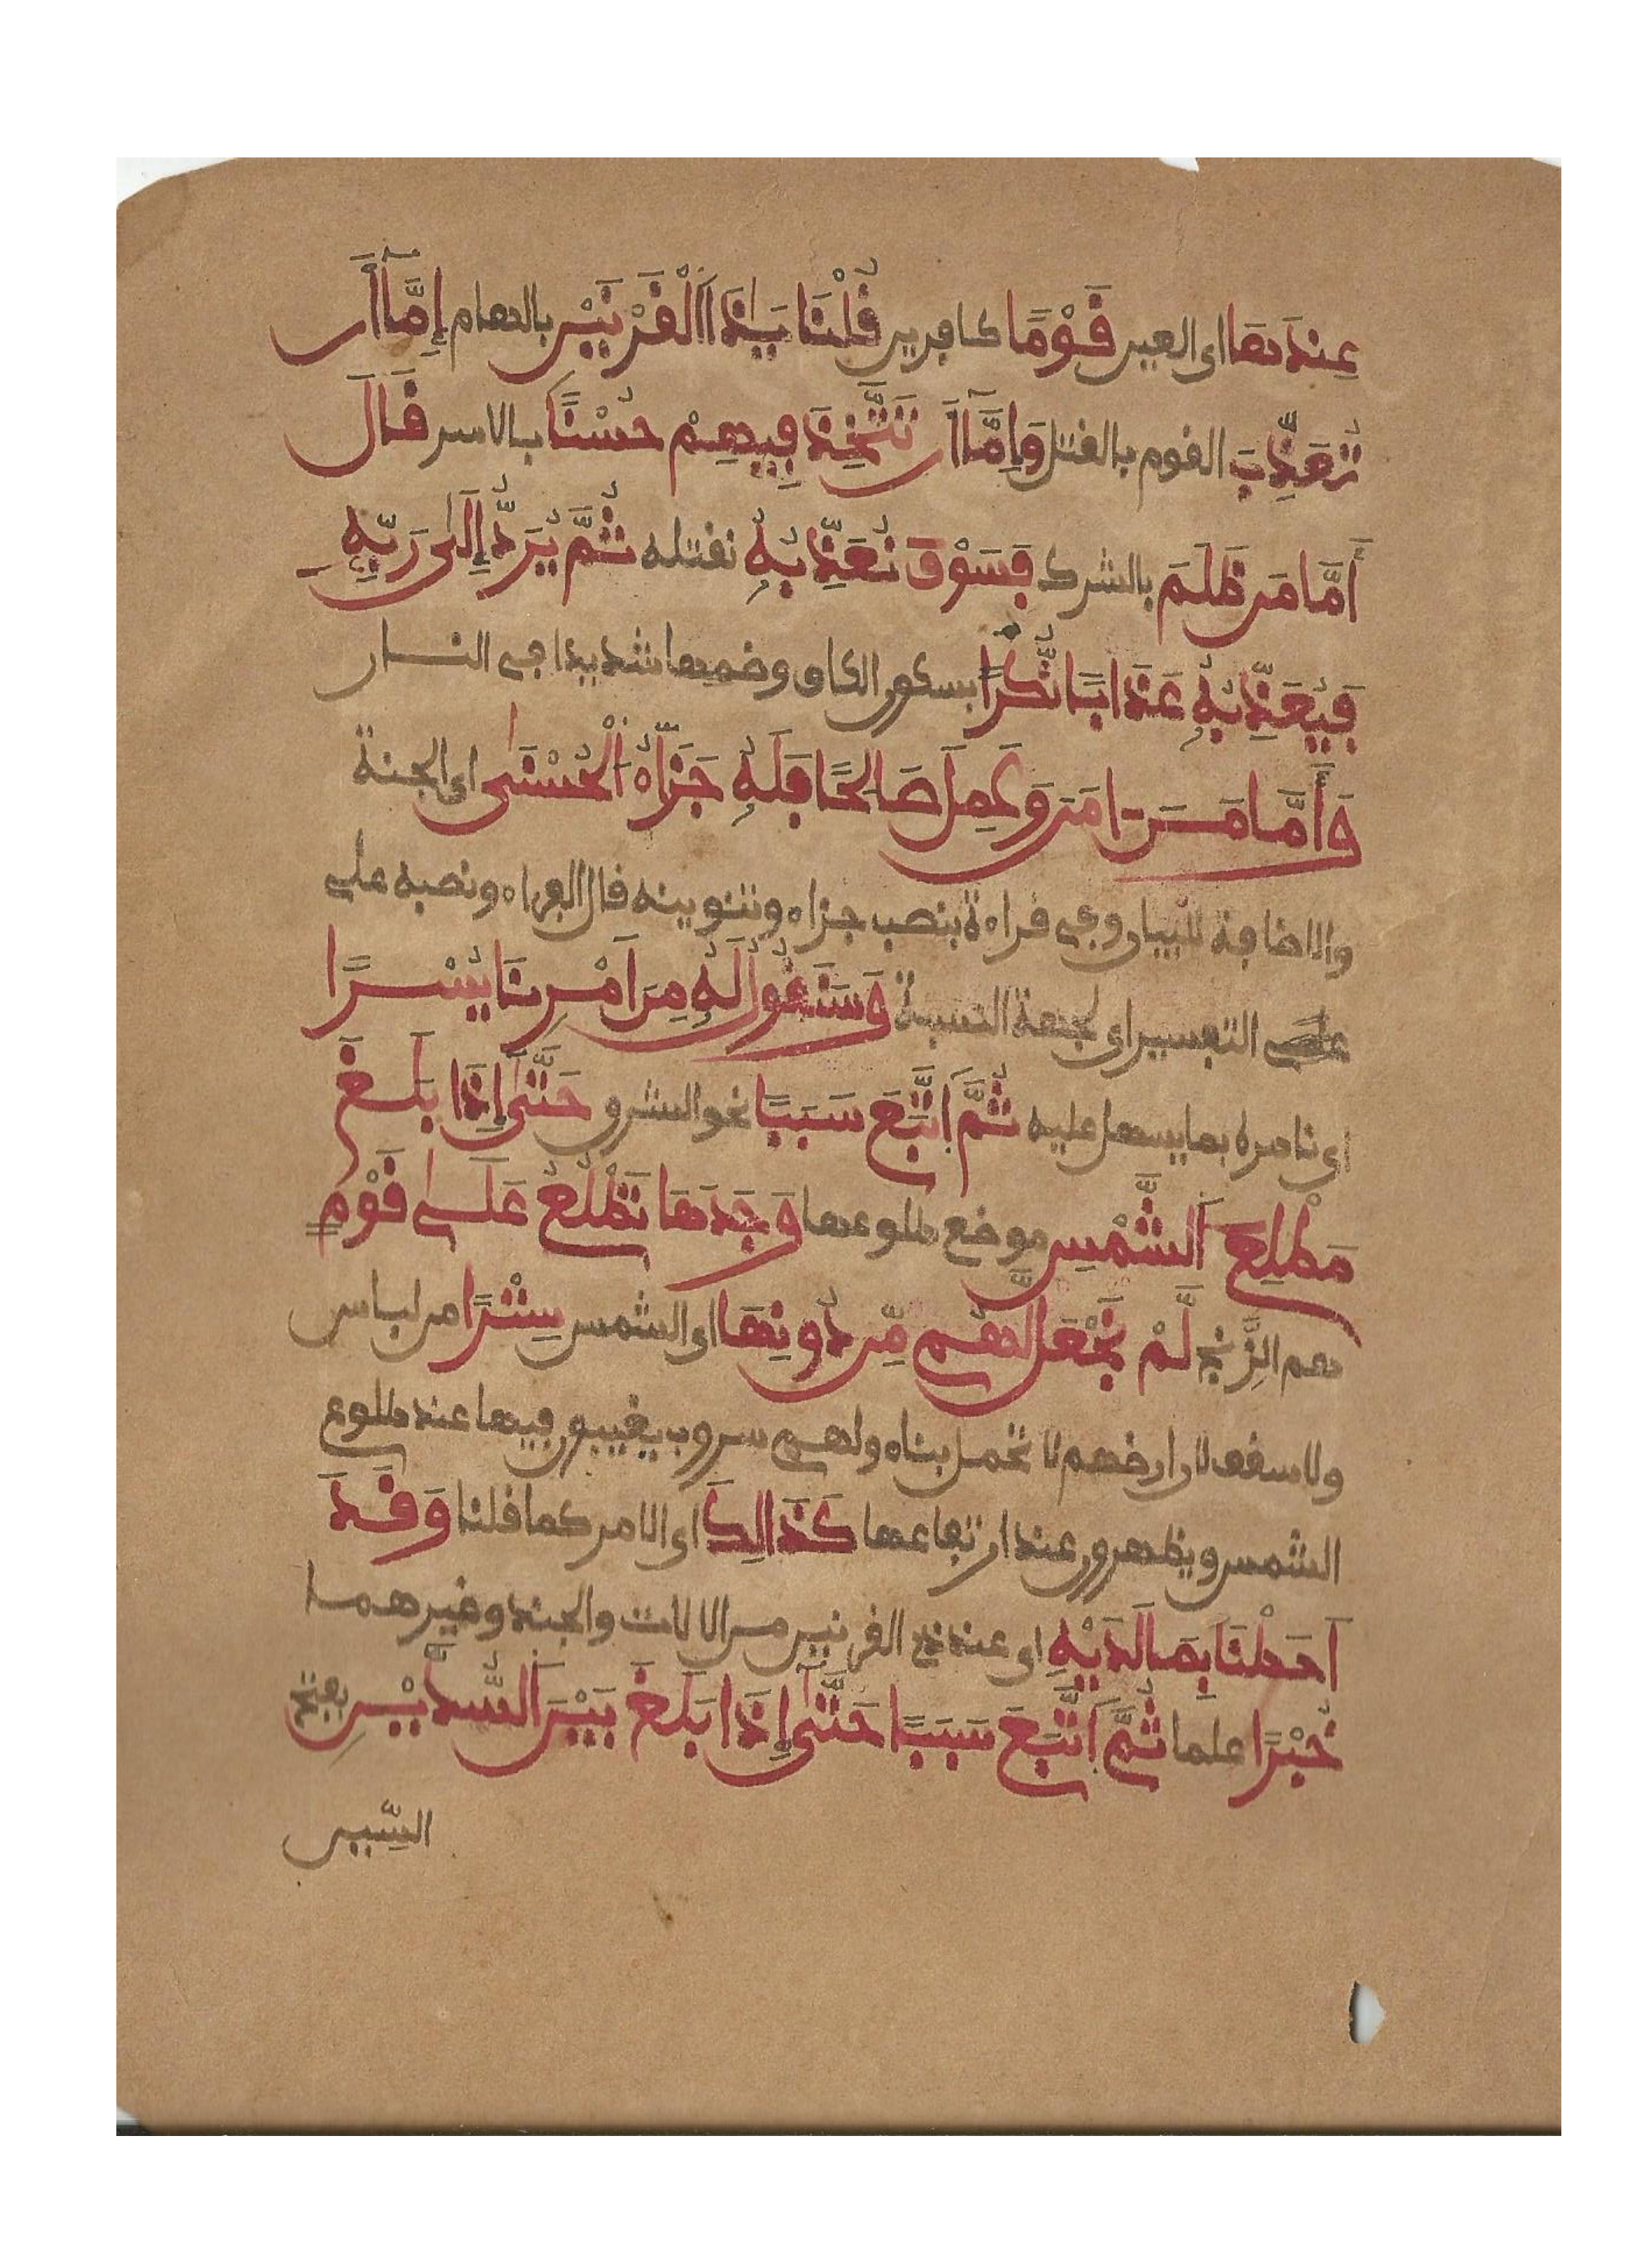 عِندَهَا اى العين قَوْمًا كافرين قُلْنَا يَـٰذَا اَ۬لْقَرْنَيْنِ بالهام إِمَّآ أَن
تُعَذِّبَ القوم بالقتل وَإِمَّآ أَن تَتَّخِذَ فِيهِمْ حُسْنًا بالاسر قَالَ
أَمَّا مَن ظَلَمَ بالشرك فَسَوْفَ نُعَذِّبُهُۥ نقتله ثُمَّ يُرَدُّ إِلَىٰ رَبِّهِۦ
فَيُعَذِّبُهُۥ عَذَابًا نُّكُرًا بسكون الكاف وضمها شديدا فى النار
وَأَمَّا مَنَ ـامَنَ وَعَمِلَ صَالِحًا فَلَهُۥ جَزَآءُ اُ۬لْحُسْنَىٰ اى الجنة
والاضافة للبيان وفى قراءة بنصب جزاء وتنوينه قال الفراء ونصبه على
على التفسير اى لجهة النسبة وَسَنَقُولُ لَهُۥ مِنَ اَمْرِنَا يُسْرًا
اى نامره بما يسهل عليه ثُمَّ اَتَّبَعَ سَبَبًا نحو الشرق حَتَّىٰٓ إِذَا بَلَغَ
مَطْلِعَ اَ۬لشَّمْسِ موضع طلوعها وَجَدَهَا تَطْلُعُ عَلَىٰ قَوْمٍ
هم الزِّنج لَّمْ نَجْعَل لَّهُم مِّن دُونِهَا اى الشمس سِتْرًا من لباس
ولا سقف لان ارضهم لا تحمل بناء ولهم سروب يغيبون فيها عند طلوع
الشمس ويظهرون عند ارتفاعها كَذَالِكَ اى الامر كما قلنا وَقَدَ
اَحَطْنَا بِمَا لَدَيْهِ اى عند ذى القرنين من الالات والجند وغيرهما
خُبْرًا علما ثُمَّ اَتَّبَعَ سَبَبًا حَتَّىٰٓ إِذَا بَلَغَ بَيْنَ اَ۬لسُّدَّيْنِ بفتح
السّين